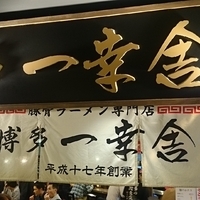 多一幸舎
豚骨ラーメン専門店
博多一幸舎
平成十七年創業